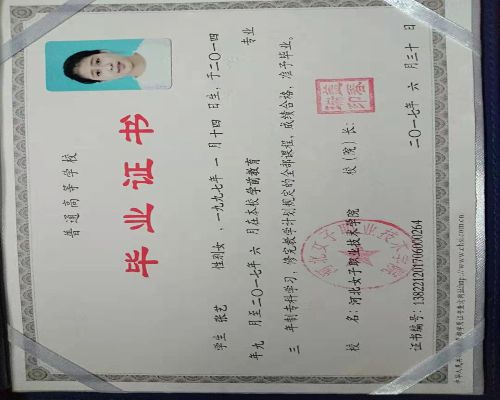 普通高等学校
毕业证书
学生 张艺 性别女，一九九七年 一 月 十四 日生，于二〇一四
年九 月至二〇一七年 六 月在本校 学前教育 专业
三 年制专科学习，修完教学计划规定的全部课程，成绩合格，准予毕业。
校 名：河北女子职业技术学院 校（院）长：
证书编号：138221201706000264 二〇一七年 六 月三十 日
http://www.chsi.com.cn